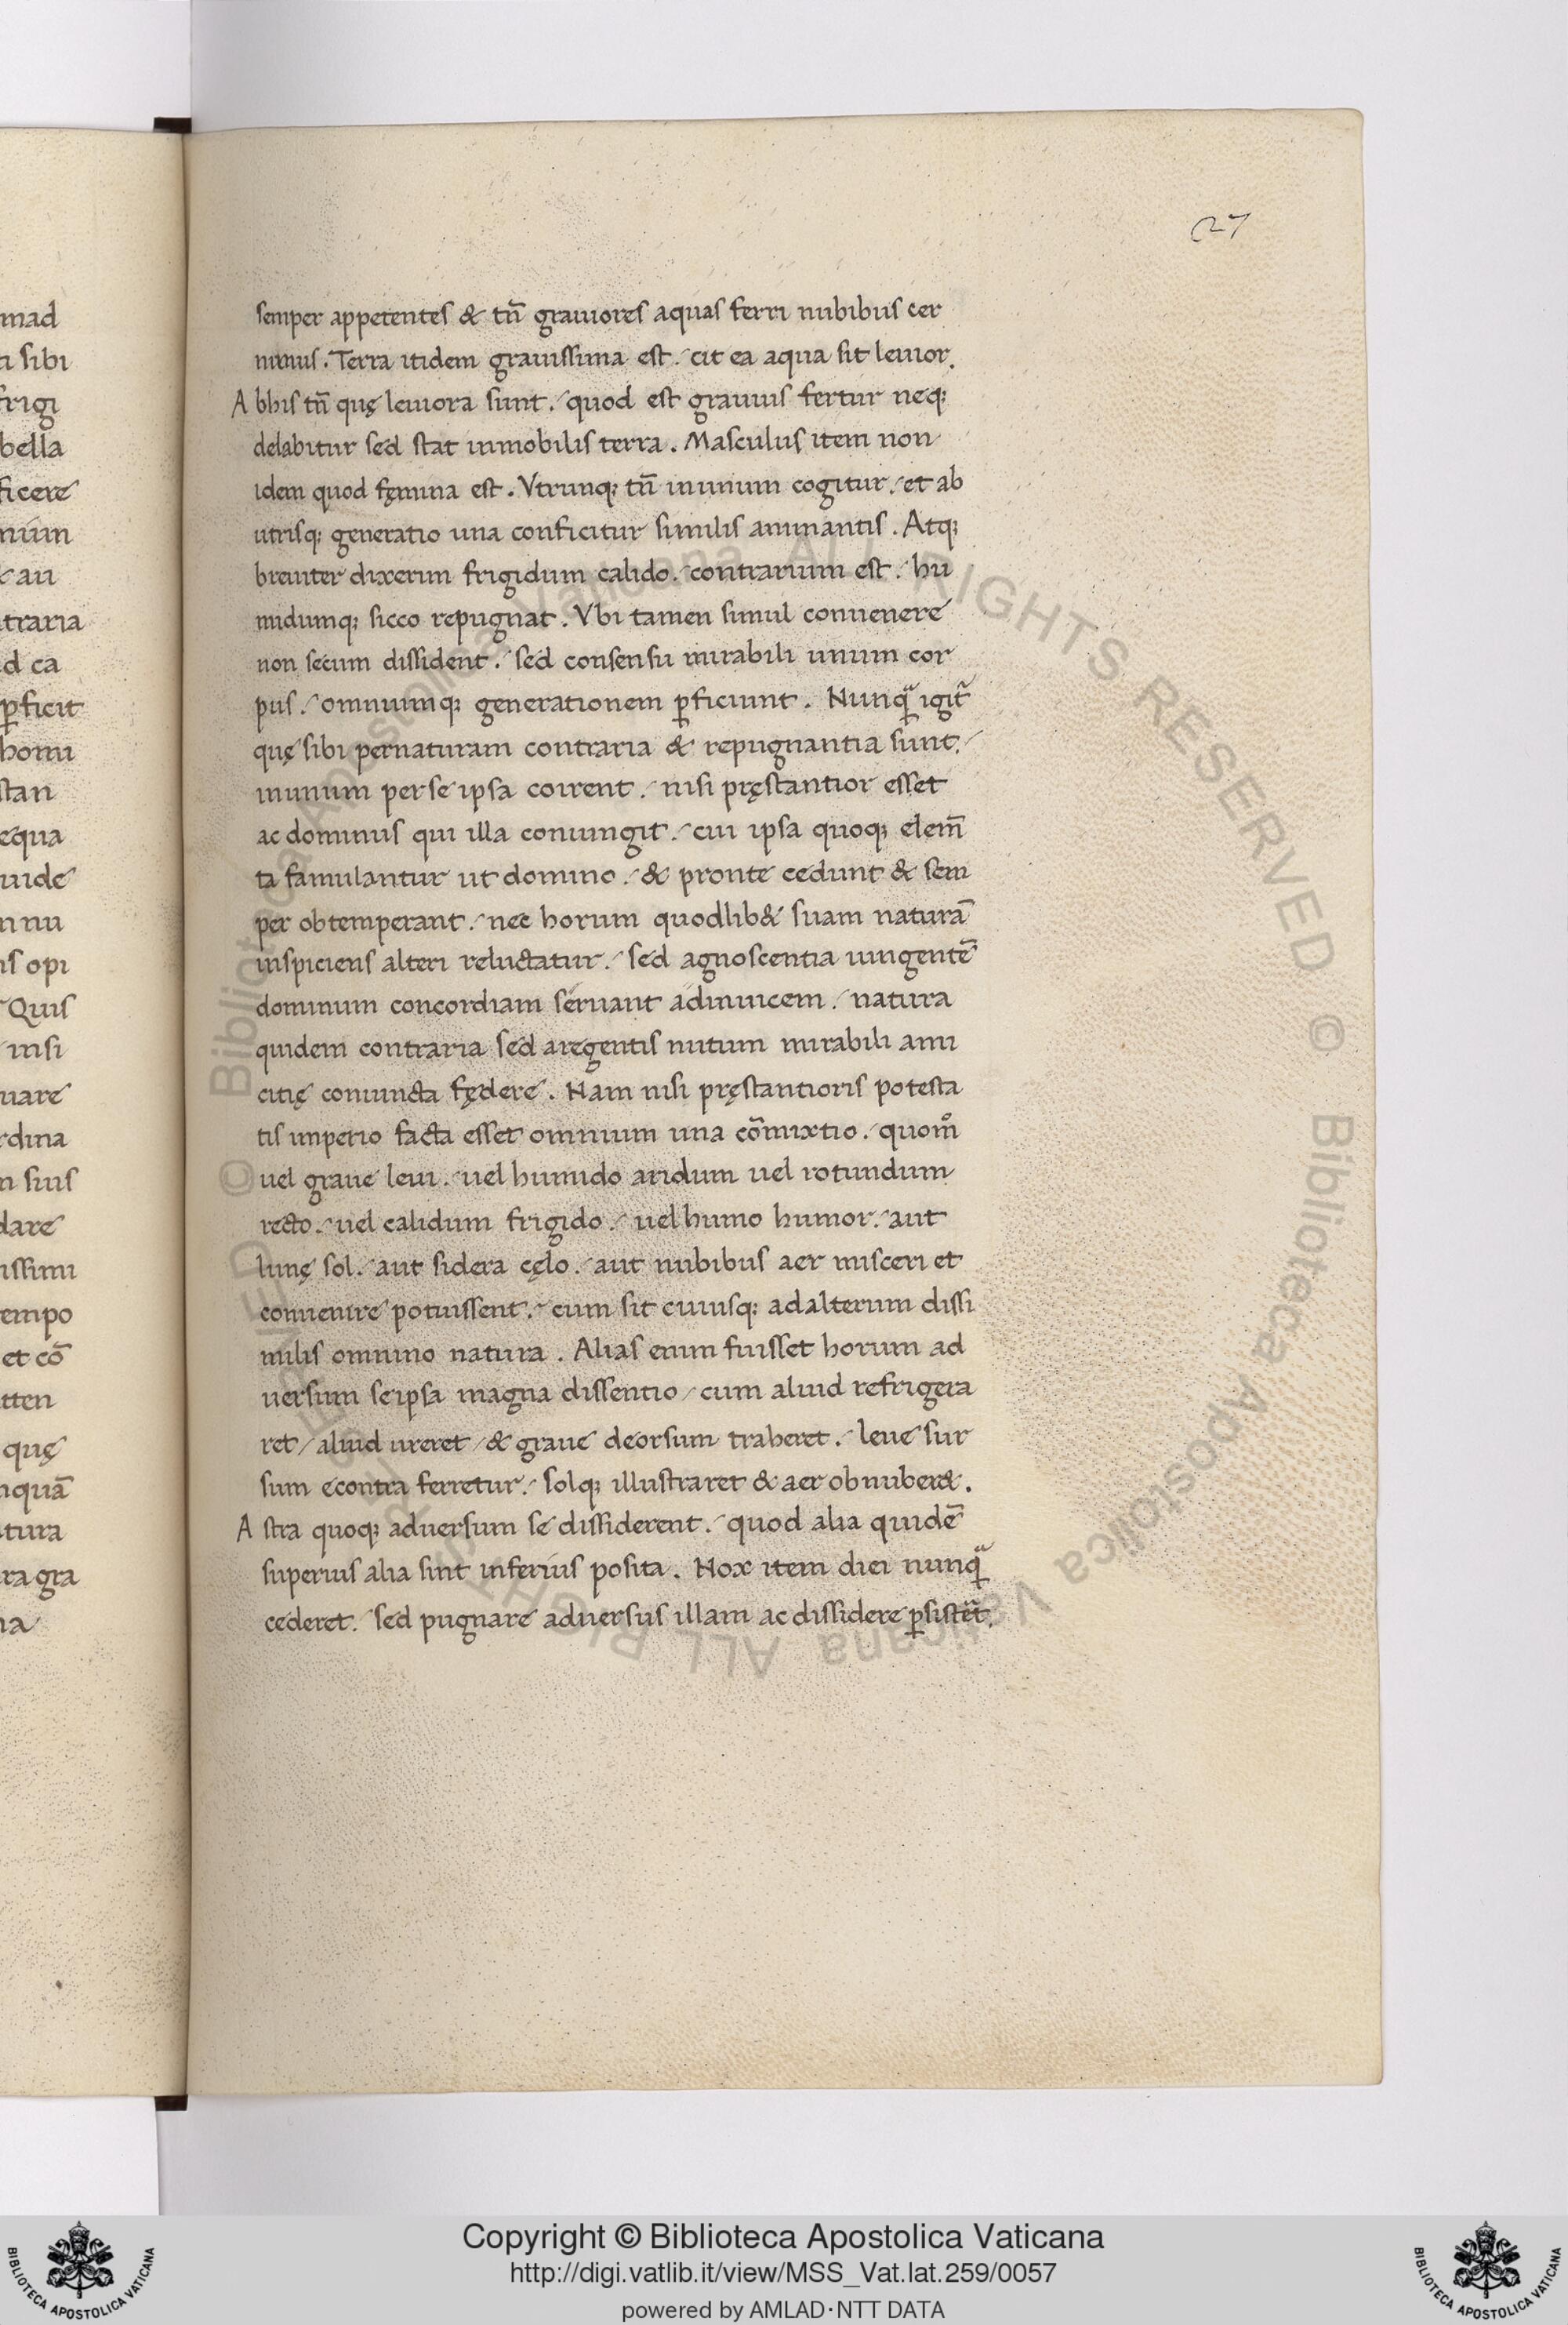 27
semper appetentes & tñ grauiores aquas ferri nubibus cer
nimus. Terra itidem grauissima est. cit ea aqua sit leuior.
A bhis tñ quę leuiora sunt. quod est grauius fertur neq;
delabitur sed stat inmobilis terra. Masculus item non
idem quod fęmina est. Vtrunq; tñ inunum cogitur. et ab
utrisq; generatio una conficitur similis animantis. Atq;
breuiter dixerim frigidum calido. contrarium est. hu
midumq; sicco repugnat. Vbi tamen simul conuenere
non secum dissident. sed consensu mirabili unum cor
pus. omniumq; generationem ꝑficiunt. Nunqᷓ igit᷑
quę sibi pernaturam contraria & repugnantia sunt.
inunum perse ipsa coirent. nisi pręstantior esset
ac dominus qui illa coniungit. cui ipsa quoq; elem̄
ta famulantur ut domino. & pronte cedunt & sem
per obtemperant. nec horum quodlib& suam naturā
inspiciens alteri reluctatur. sed agnoscentia iungentē
dominum concordiam seruant adinuicem. natura
quidem contraria sed aregentis nutum mirabili ami
citię coniuncta fędere. Nam nisi pręstantioris potesta
tis imperio facta esset omnium una cōmixtio. quom̊
uel graue leui. uel humido aridum uel rotundum
recto. uel calidum frigido. uel humo humor. aut
lunę sol. aut sidera cęlo. aut nubibus aer misceri et
conuenire potuissent. cum sit cuiusq; adalterum dissi
milis omnino natura. Alias enim fuisset horum ad
uersum seipsa magna dissentio / cum aliud refrigera
ret / aliud ureret / & graue deorsum traheret. leue sur
sum econtra ferretur. solq; illustraret & aer obnuber&.
A stra quoq; aduersum se dissiderent. quod alia quidē
superius alia sint inferius posita. Nox item diei nunqᷓ
cederet. sed pugnare aduersus illam ac dissidere ꝑsistet᷑.
mad
sibi
frigi
bella
ficere
nium
au
traria
d ca
ꝑficit
homi
stan
equa
uide
nu
is opi
Quis
nisi
uare
rdina
n suis
dare
issimi
tempo
et cō
tten
quę
nquā
tura
ra gra
na
© Biblioteca Apostolica Vaticana ALL RIGHTS RESERVED © Biblioteca Apostolica Vaticana ALL RIGHTS RESERVED
BIBLIOTECA APOSTOLICA VATICANA
Copyright © Biblioteca Apostolica Vaticana
http://digi.vatlib.it/view/MSS_Vat.lat.259/0057
powered by AMLAD·NTT DATA
BIBLIOTECA APOSTOLICA VATICANA